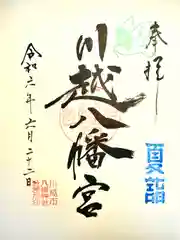 奉拝
川越八幡宮
令和六年六月二十二日
夏詣
川越市
八幡宮